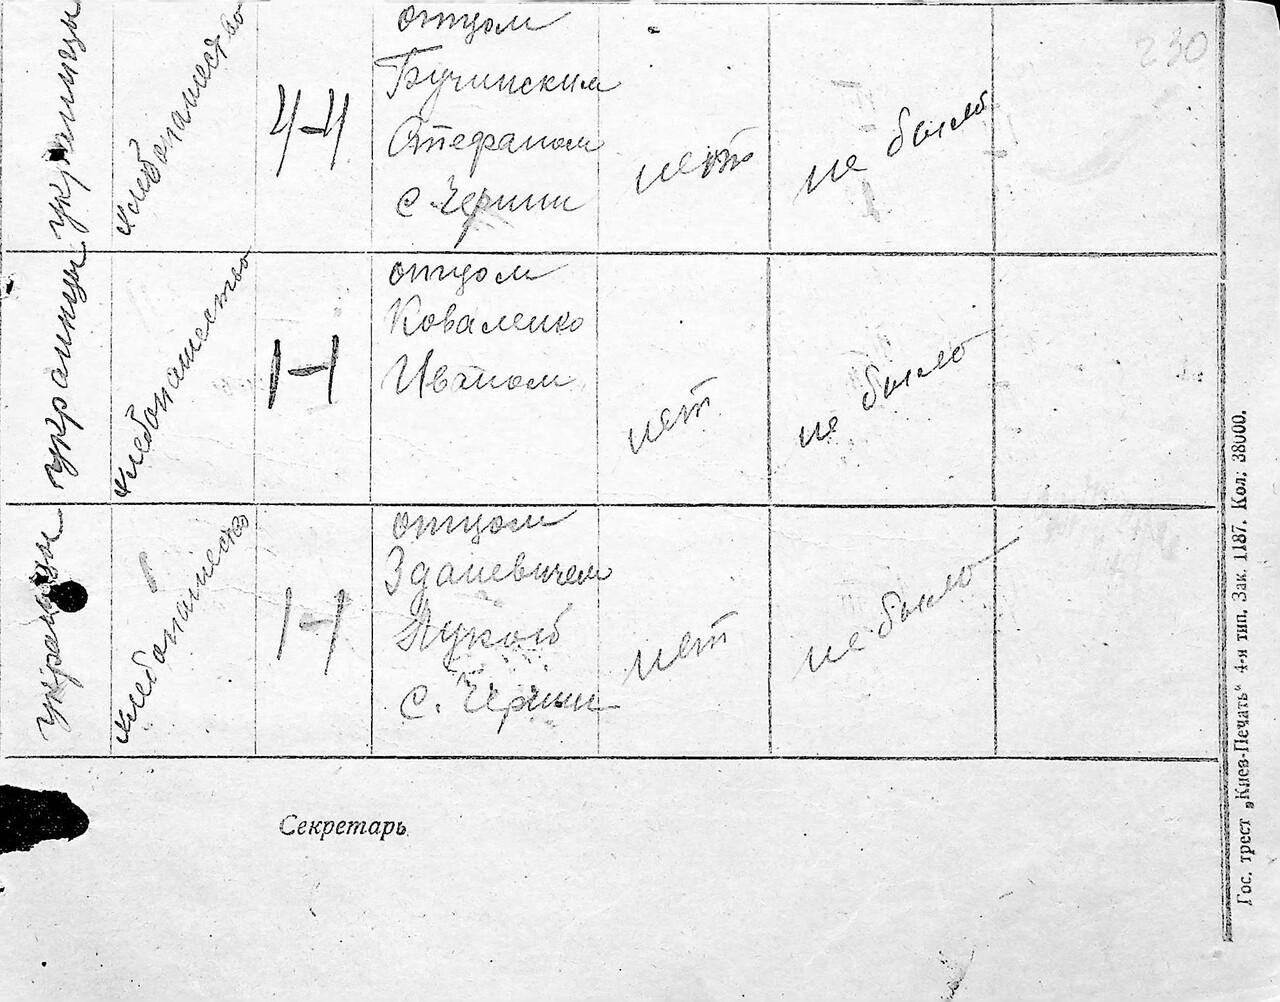 230
украинцы
хлебопашество
4-4
отцом
Бучинским
Стефаном
с. Черпии
нет
не было
украинцы
хлебопашество
1-1
отцом
Коваленко
Иваном
нет
не было
украинцы
хлебопашество
1-1
отцом
Зданевичем
Лукой
с. Черпии
нет
не было
Секретарь
Гос. трест „Киев-Печать“ 4-я тип. Зак. 1187. Кол. 38000.